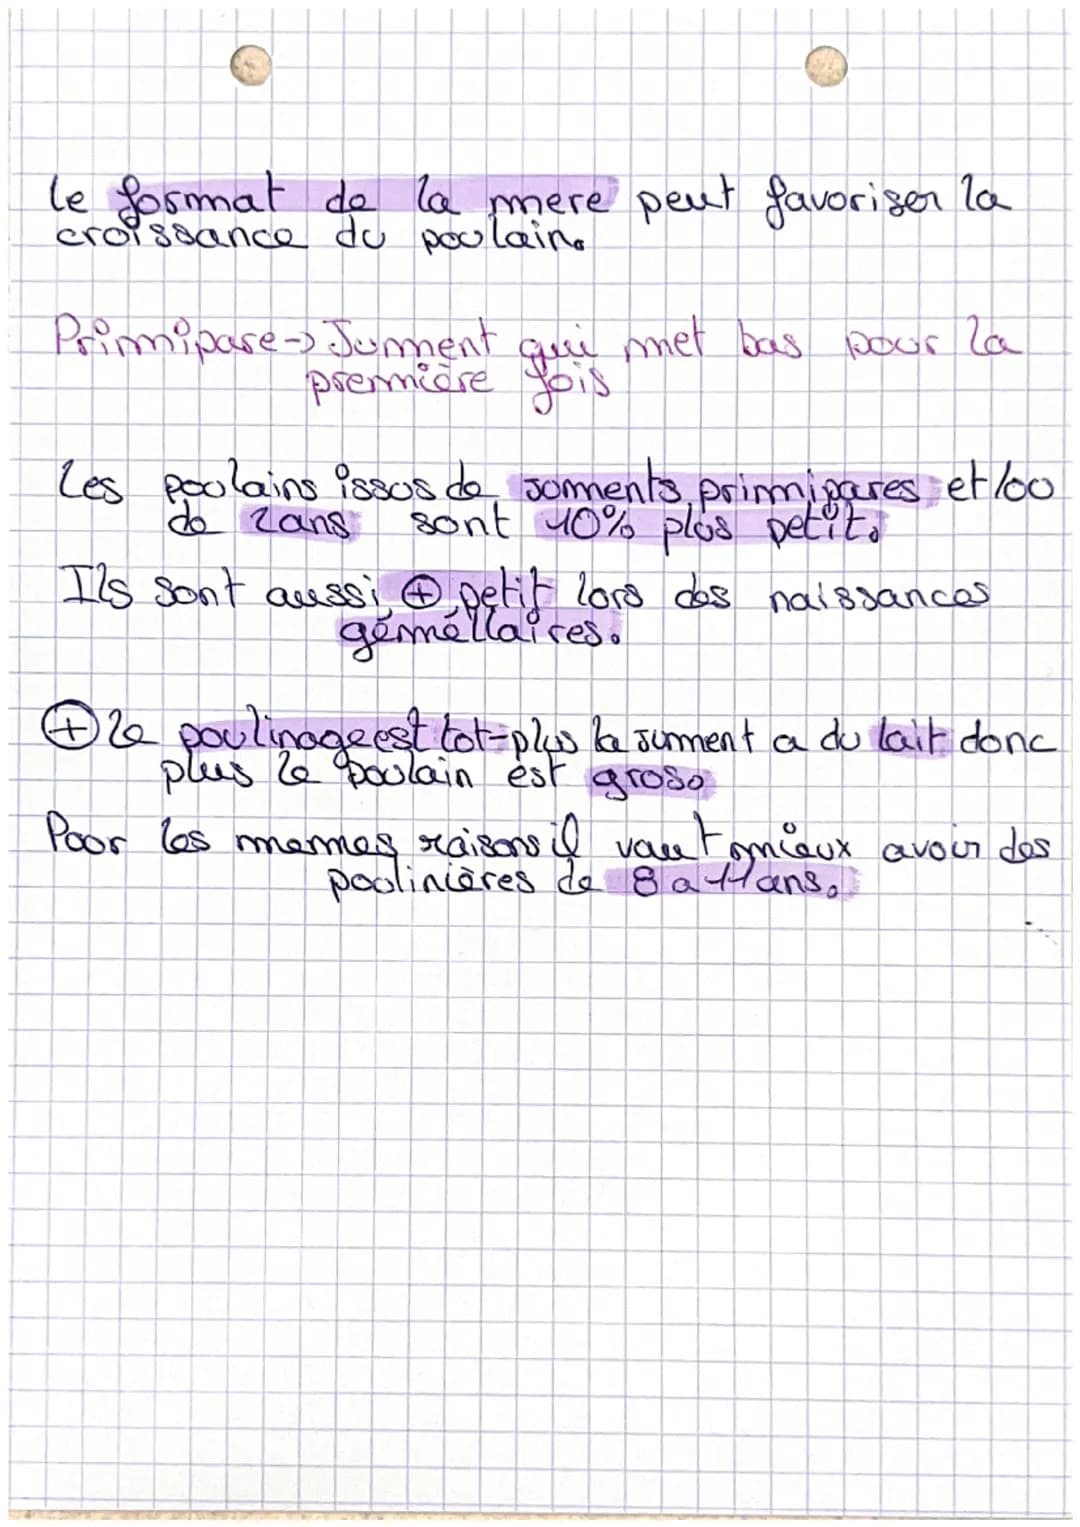 le format de la mere peut favoriser la
croissance du poulain.
Primipare -> Jument qui met bas pour la
première fois
Les poulains issus de juments primipares et/ou
de 2ans sont 10% plus petit.
Ils sont aussi ⊕ petit lors des naissances
gémellaires.
⊕ le poulinage est tot - plus la jument a du lait donc
plus le poulain est gros.
Pour les memes raisons il vaut mieux avoir des
poulinières de 8 a 11 ans.